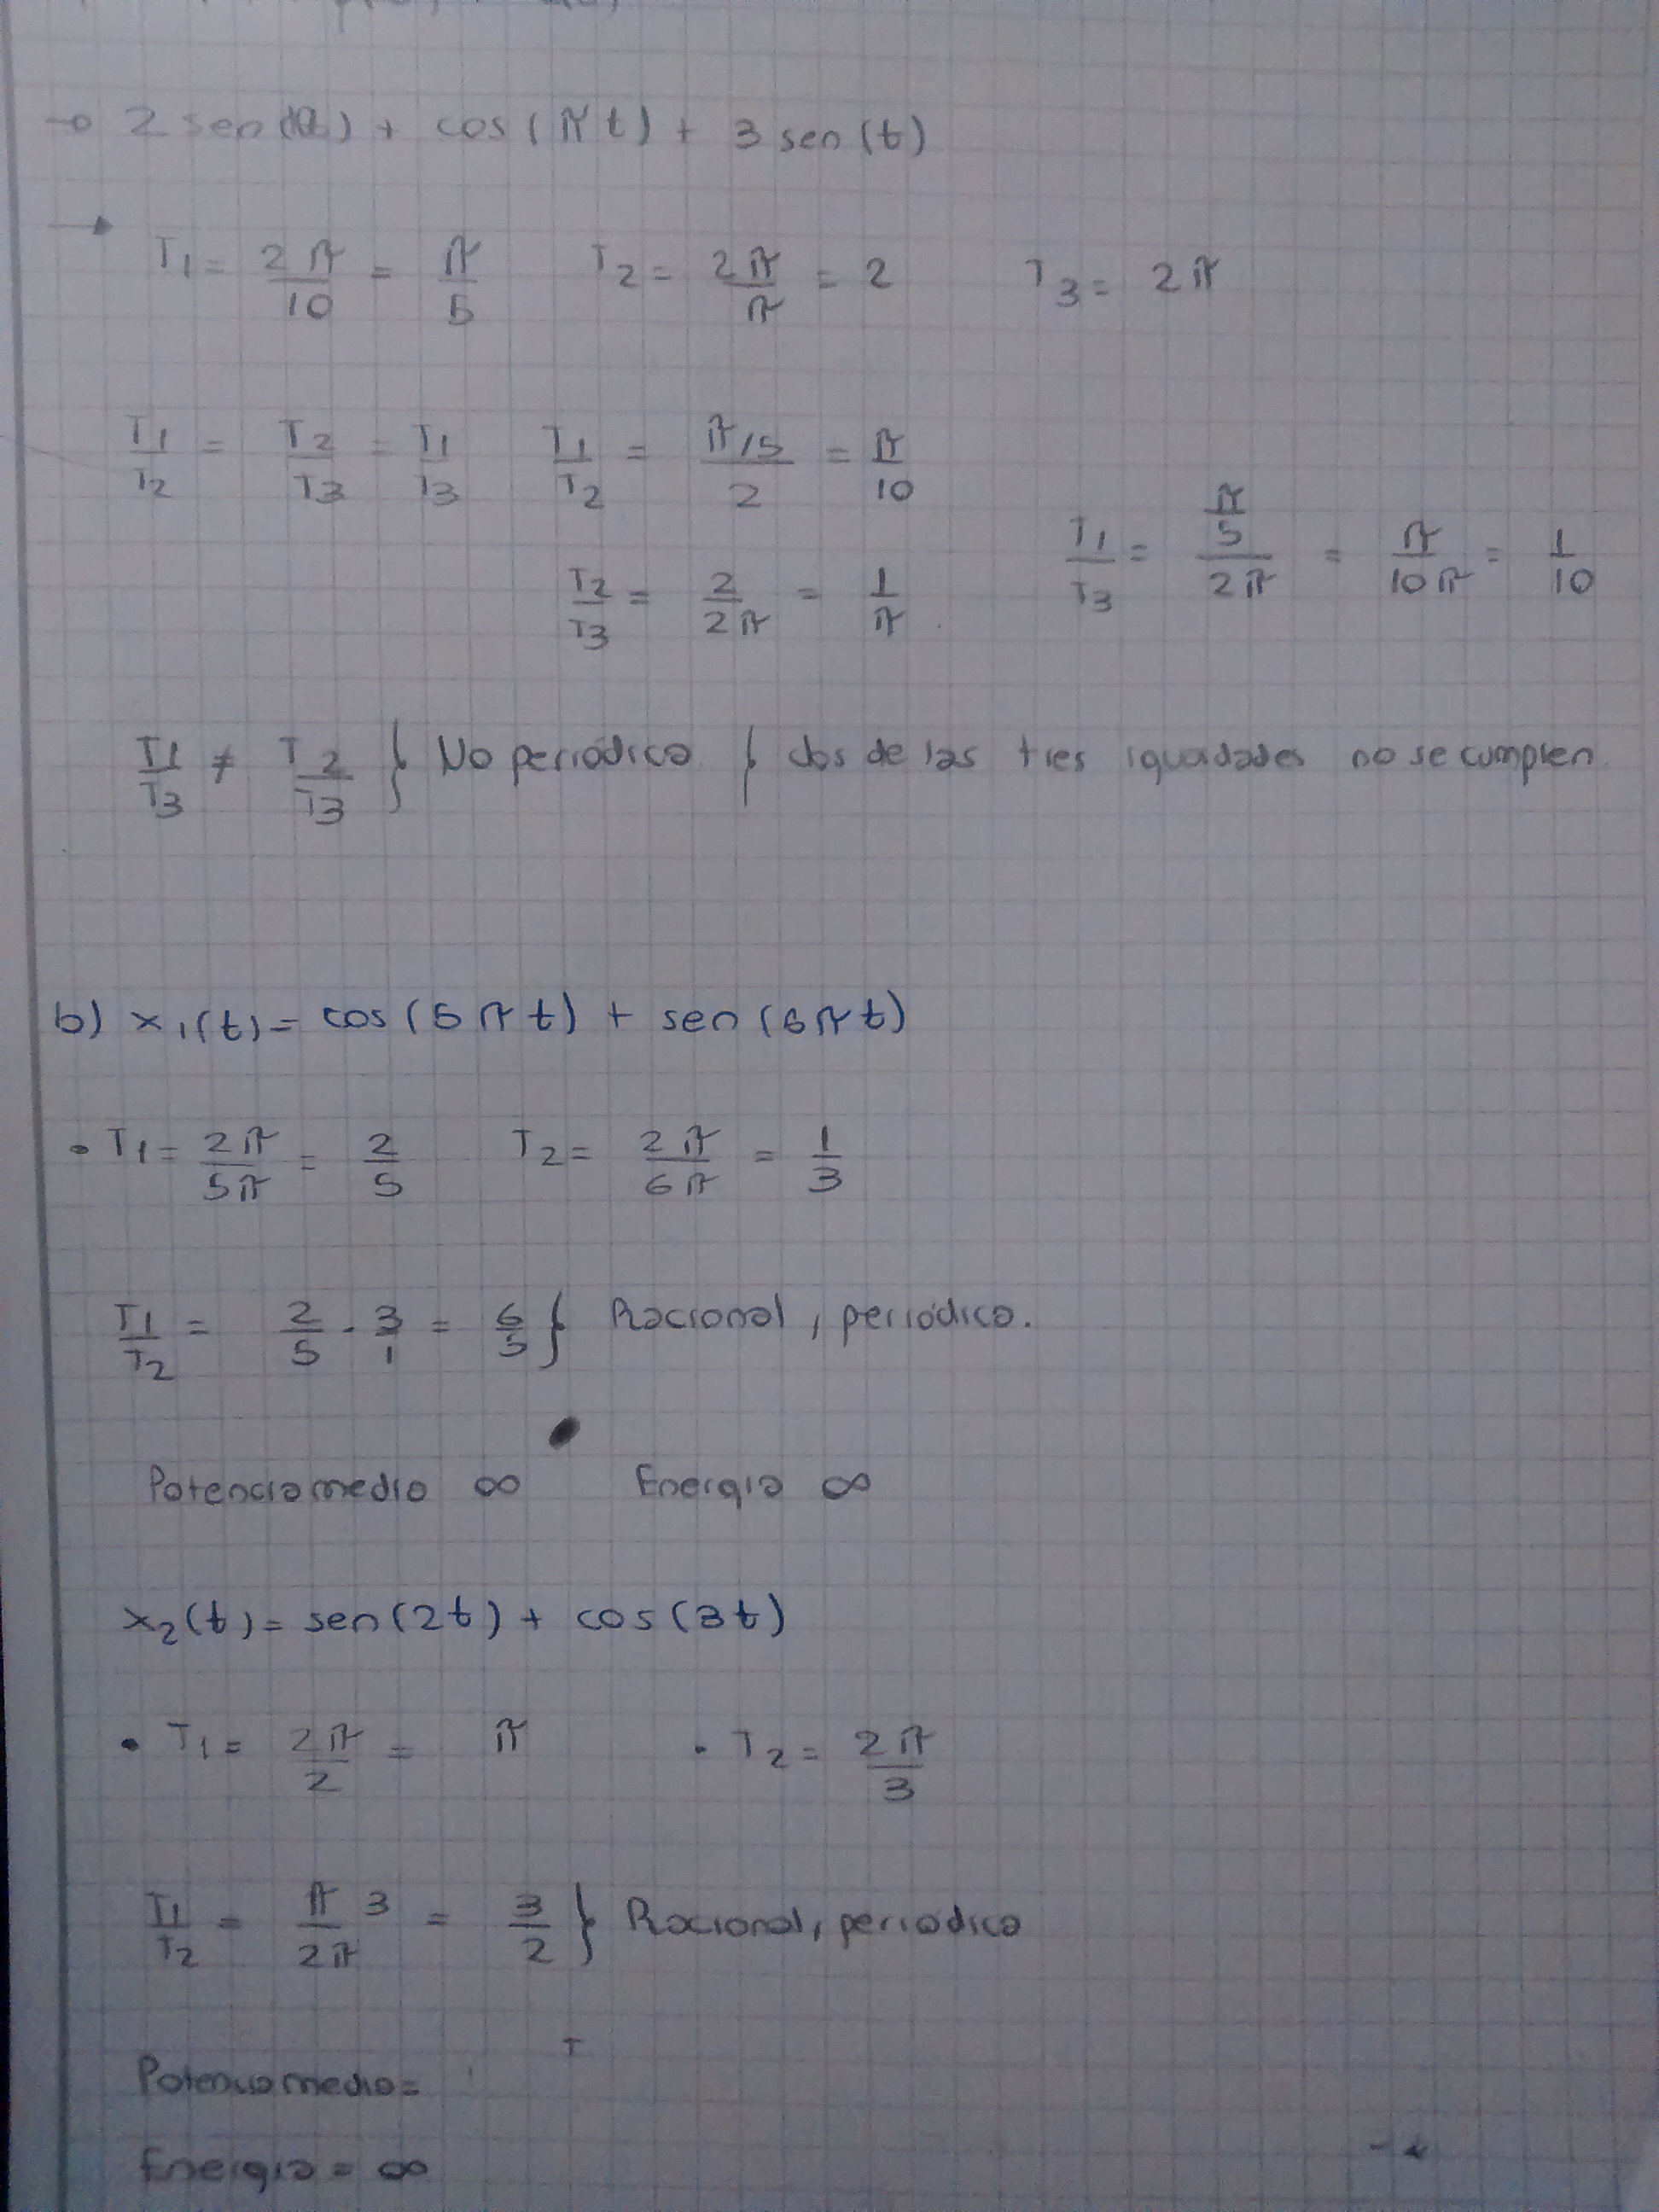 → 2 sen(10t) + cos(πt) + 3 sen(t)
→ T1 = 2π/10 = π/5 T2 = 2π/π = 2 T3 = 2π
T1/T2 = T2/T3 = T1/T3 T1/T2 = π/5/2 = π/10
T2/T3 = 2/2π = 1/π
T1/T3 = π/5/2π = π/10π = 1/10
T1/T3 ≠ T2/T3 } No periódica } dos de las tres igualdades no se cumplen.
b) x1(t) = cos(5πt) + sen(6πt)
• T1 = 2π/5π = 2/5 T2 = 2π/6π = 1/3
T1/T2 = 2/5 · 3/1 = 6/5 } Racional, periódica.
Potencia media ∞ Energia ∞
x2(t) = sen(2t) + cos(3t)
• T1 = 2π/2 = π • T2 = 2π/3
T1/T2 = π/2π 3 = 3/2 } Racional, periódica
Potencia media =
Energia = ∞